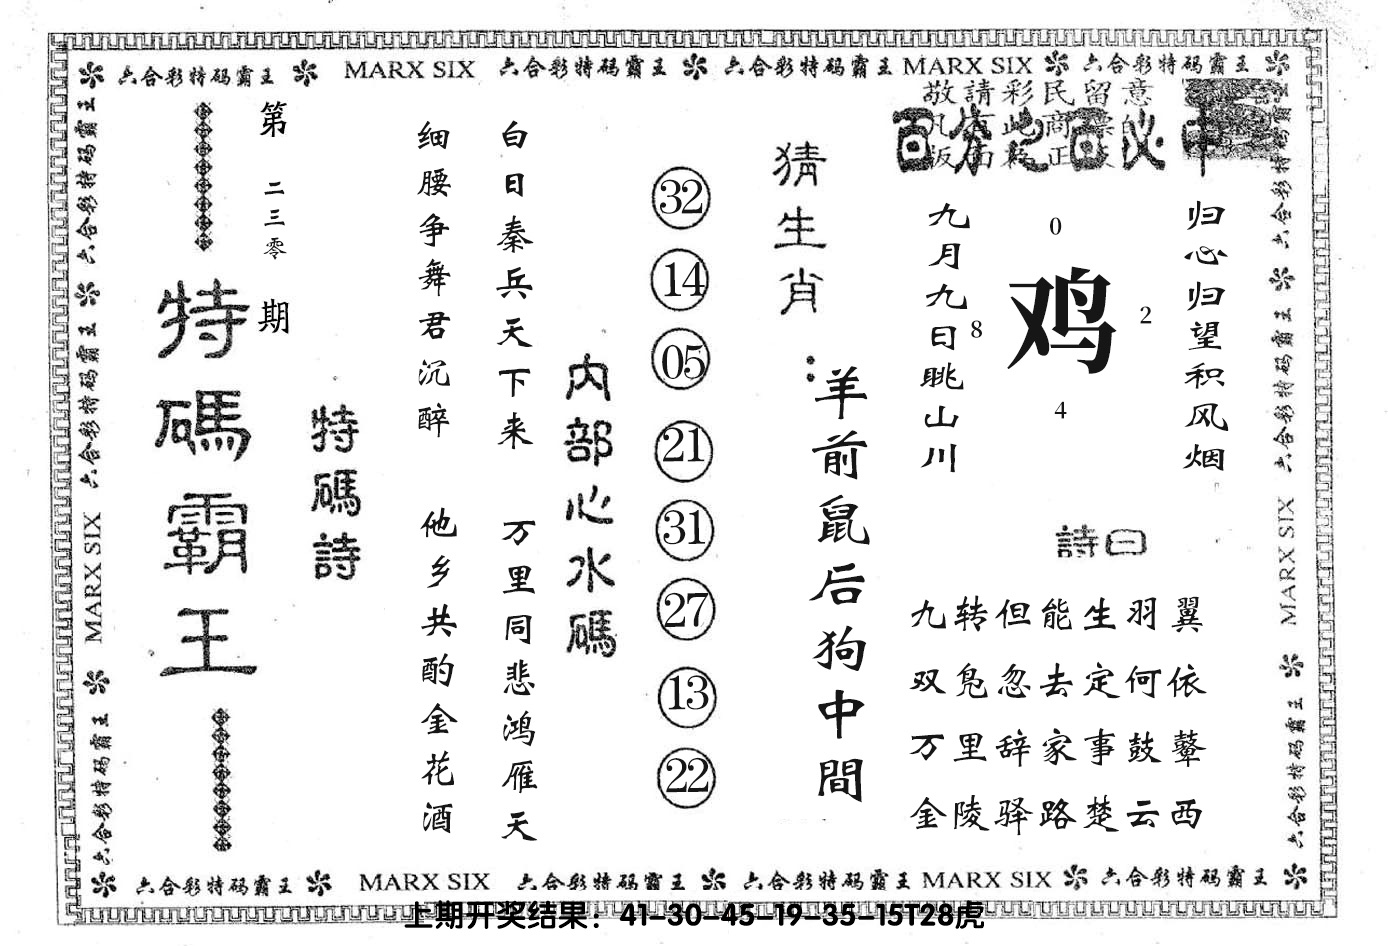 六合彩特码霸王 MARX SIX 六合彩特码霸王 六合彩特码霸王 MARX SIX 六合彩特码霸王
敬請彩民留意
百分之百必中
归心归望积风烟
九月九日眺山川
0
8
鸡
2
4
詩曰
九转但能生羽翼
双凫忽去定何依
万里辞家事鼓鼙
金陵驿路楚云西
猜生肖：
羊前鼠后狗中間
32
14
05
21
31
27
13
22
内部心水碼
白日秦兵天下来 万里同悲鸿雁天
细腰争舞君沉醉 他乡共酌金花酒
特碼詩
第二三零期
特碼霸王
六合彩特码霸王 六合彩特码霸王 六合彩特码霸王 MARX SIX 六合彩特码霸王
六合彩特码霸王 六合彩特码霸王 MARX SIX 六合彩特码霸王
六合彩特码霸王 MARX SIX 六合彩特码霸王 六合彩特码霸王 MARX SIX 六合彩特码霸王
上期开奖结果：41-30-45-19-35-15T28虎